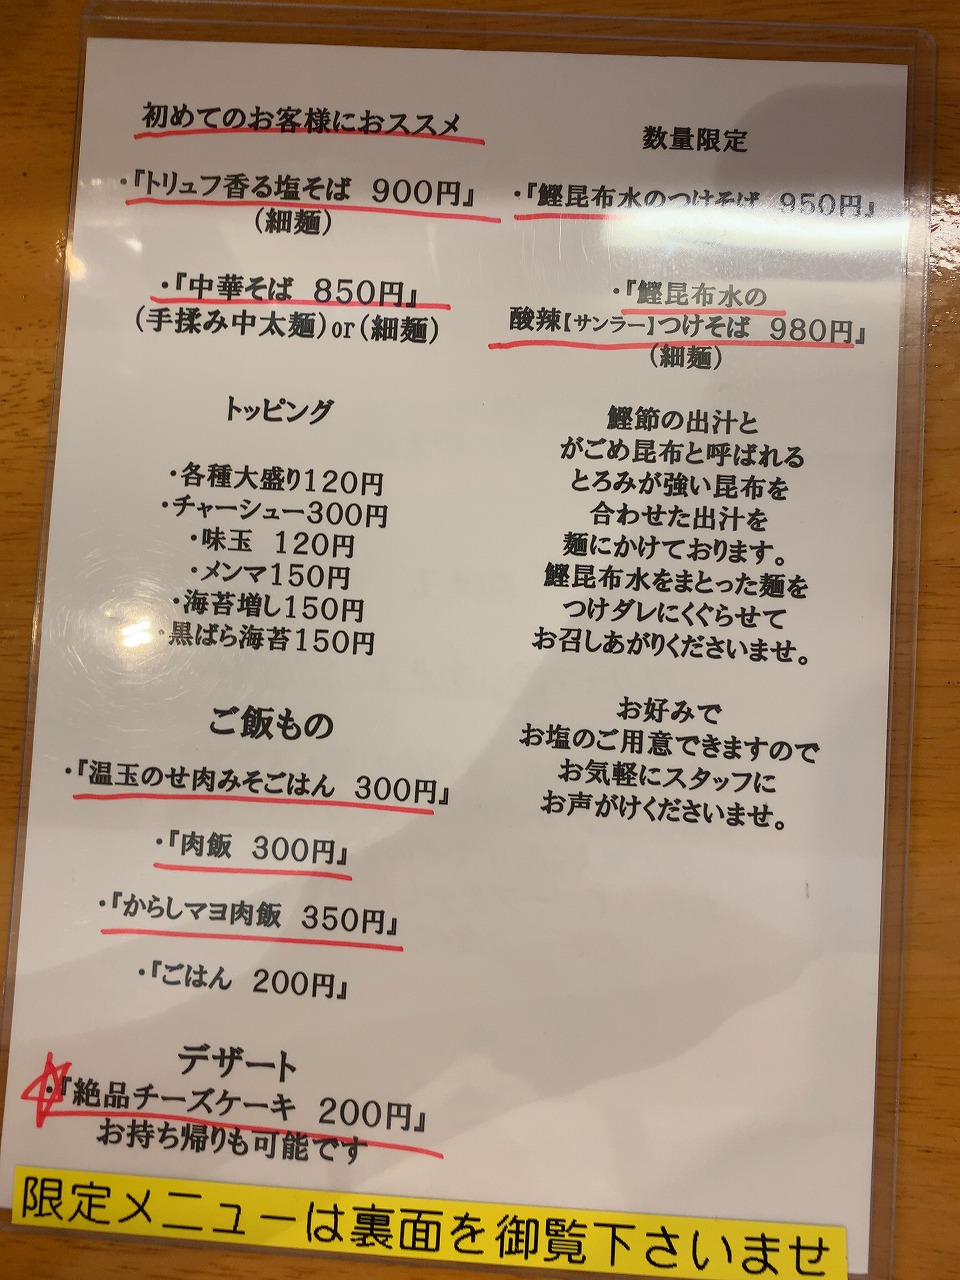 初めてのお客様におススメ
・『トリュフ香る塩そば 900円』
(細麺)
・『中華そば 850円』
(手揉み中太麺)or(細麺)
トッピング
・各種大盛り120円
・チャーシュー300円
・味玉 120円
・メンマ150円
・海苔増し150円
・黒ばら海苔150円
ご飯もの
・『温玉のせ肉みそごはん 300円』
・『肉飯 300円』
・『からしマヨ肉飯 350円』
・『ごはん 200円』
デザート
・『絶品チーズケーキ 200円』
お持ち帰りも可能です
数量限定
・『鰹昆布水のつけそば 950円』
・『鰹昆布水の
酸辣【サンラー】つけそば 980円』
(細麺)
鰹節の出汁と
がごめ昆布と呼ばれる
とろみが強い昆布を
合わせた出汁を
麺にかけております。
鰹昆布水をまとった麺を
つけダレにくぐらせて
お召しあがりくださいませ。
お好みで
お塩のご用意できますので
お気軽にスタッフに
お声がけくださいませ。
限定メニューは裏面を御覧下さいませ